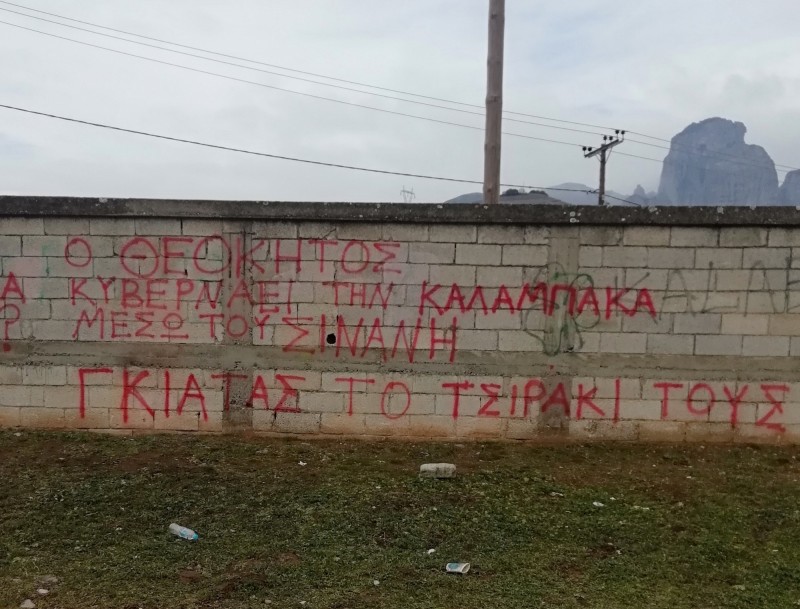 Ο ΘΕΟΚΗΤΟΣ
Α ΚΥΒΕΡΝΑΕΙ ΤΗΝ ΚΑΛΑΜΠΑΚΑ
? ΜΕΣΩ ΤΟΥ ΣΙΝΑΝΗ
ΓΚΙΑΤΑΣ ΤΟ ΤΣΙΡΑΚΙ ΤΟΥΣ